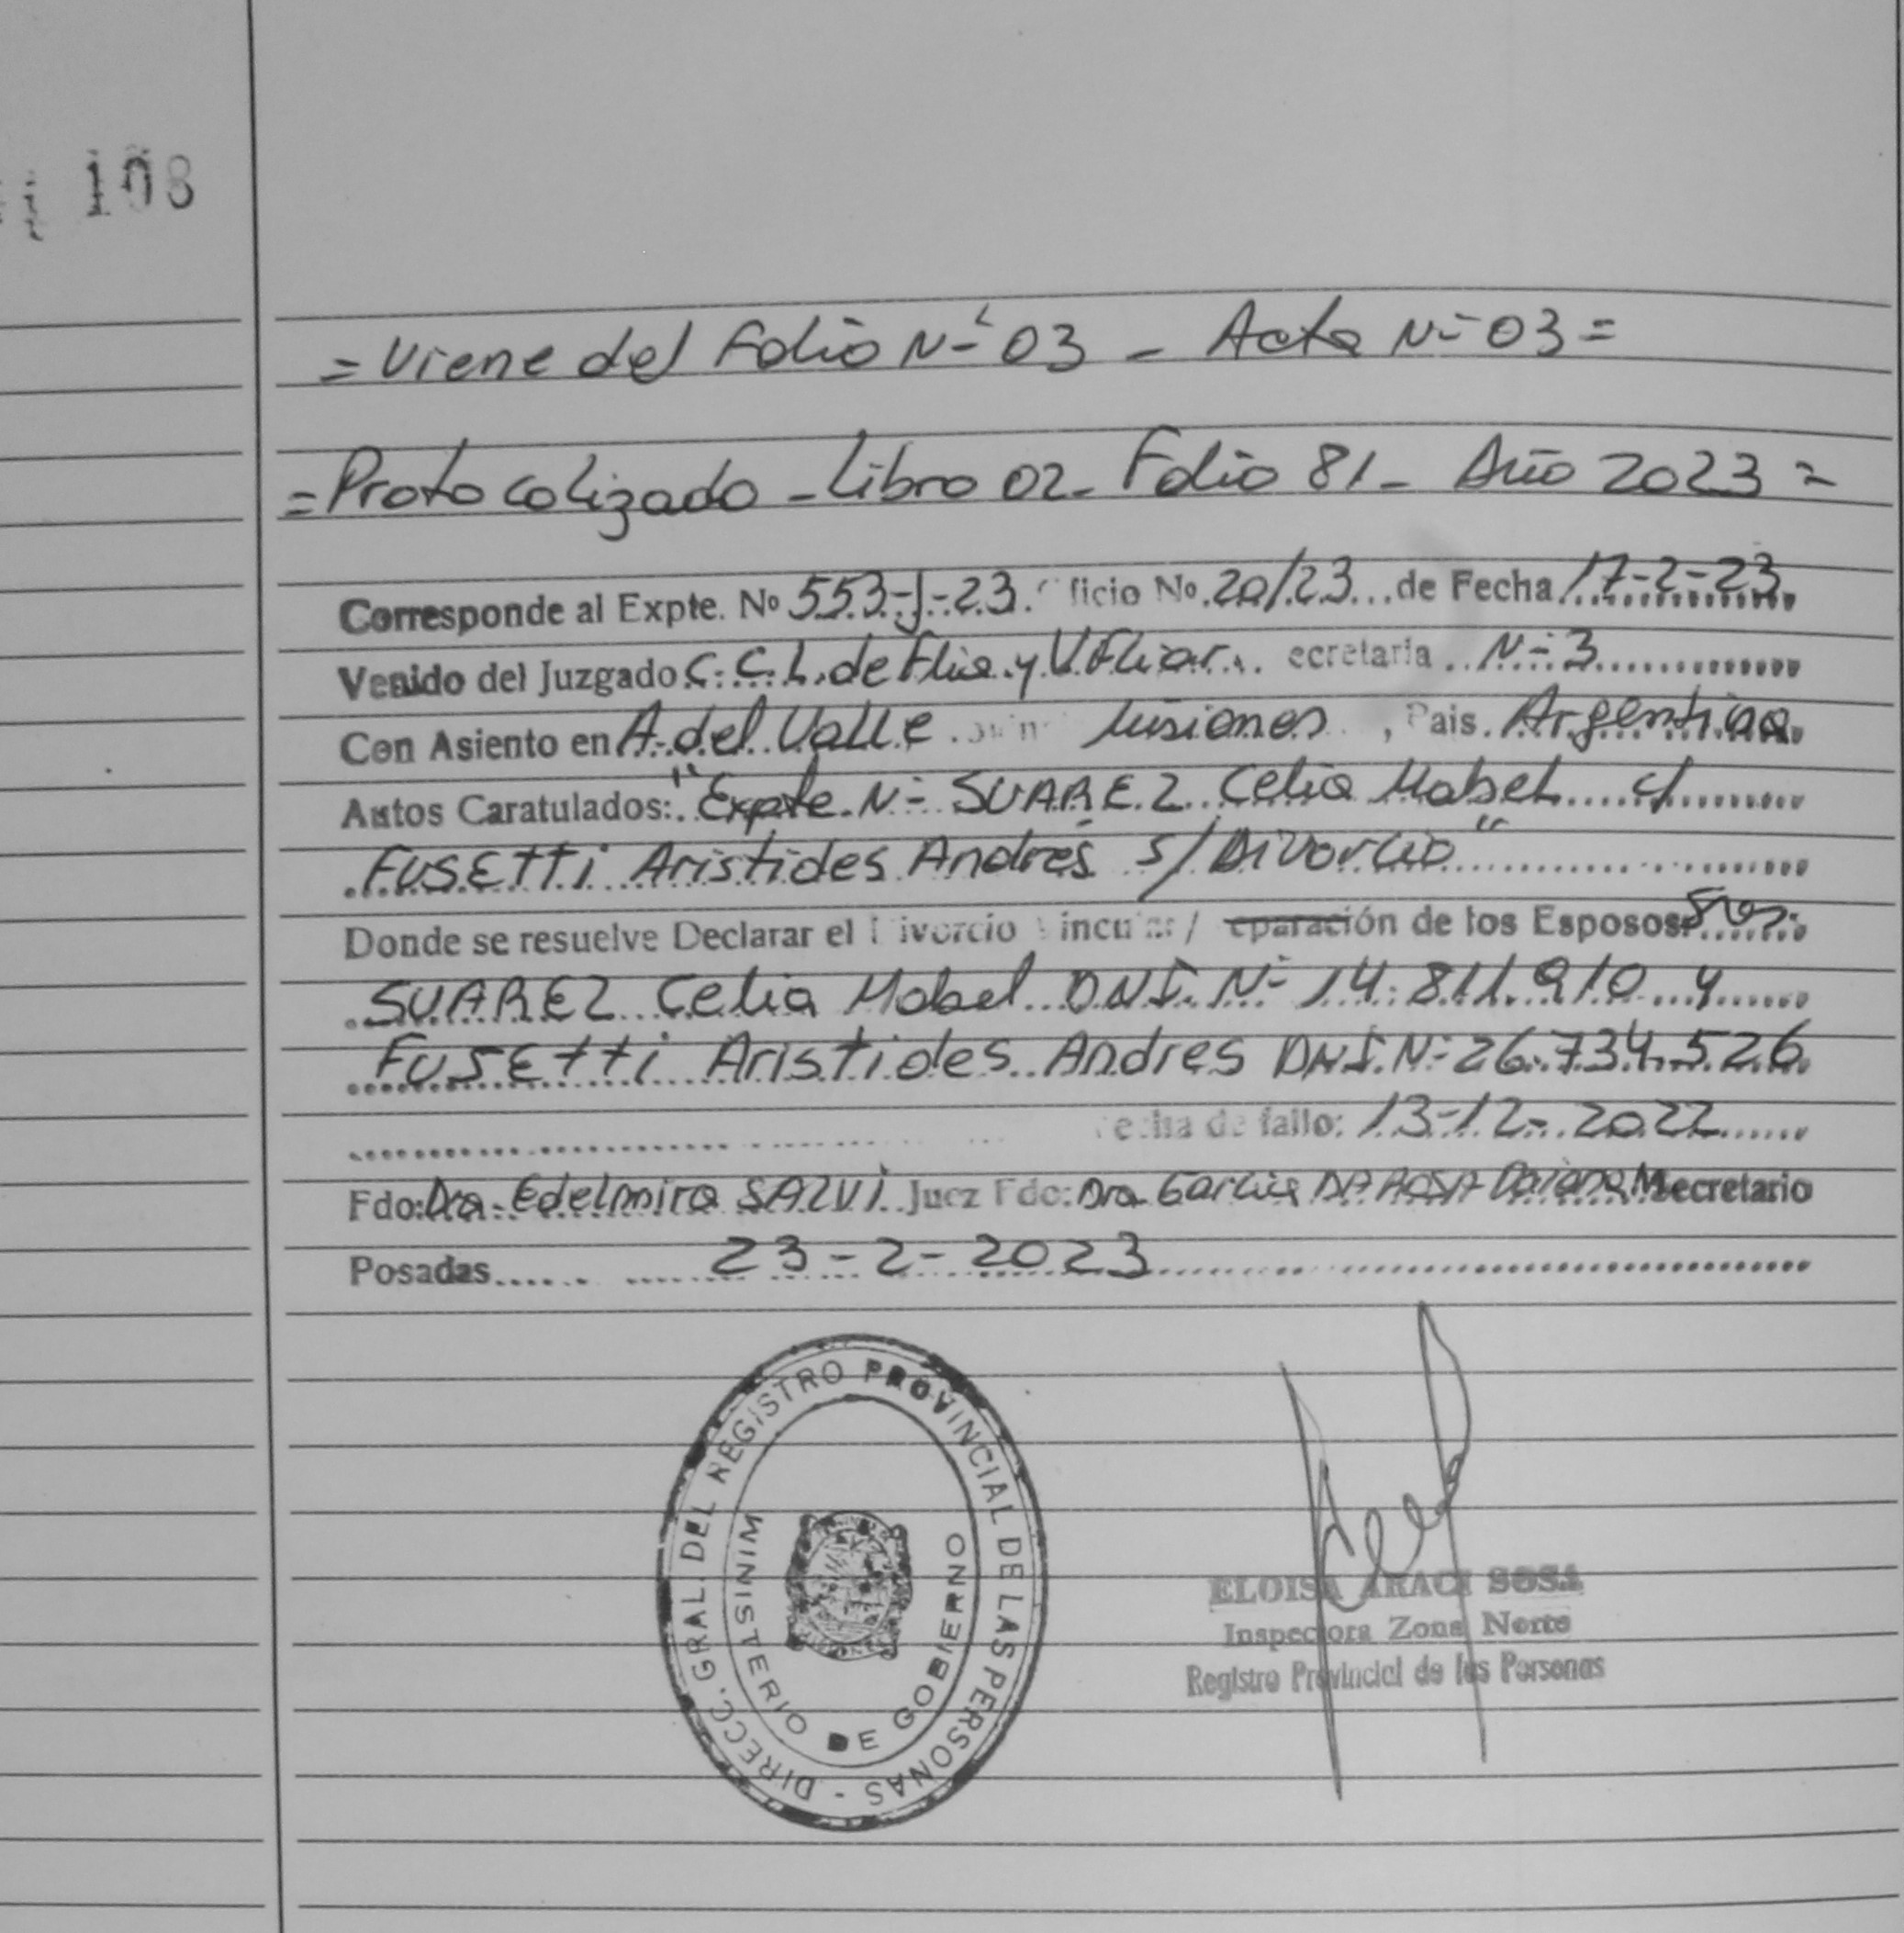 108
= Viene del Folio Nº 03 - Acta Nº 03 =
= Protocolizado - Libro 02 - Folio 81 - Año 2023 =
Corresponde al Expte. Nº 553-J-23. ficio No. 20/23 de Fecha 17-2-23
Venido del Juzgado C. C. L. de Flia. y V. Fliar. ecretaria Nº 3
Con Asiento en A. del Valle Misiones, Pais. Argentina
Autos Caratulados: "Expte. Nº SUAREZ Celia Mabel c/
FUSETTI Aristides Andrés s/ Divorcio"
Donde se resuelve Declarar el ivorcio incu / eparación de los Esposos Sres.
SUAREZ Celia Mabel D.N.I. Nº 14.811.910 y
FUSETTI Aristides Andres DNI. Nº 26.734.526
echa de fallo: 13-12-2022
Fdo: Dra. Edelmira SALVI Juez Fdo: Dra Garcia DA ROSA Daiana M Secretario
Posadas 23-2-2023
DIRECC. GRAL. DEL REGISTRO PROVINCIAL DE LAS PERSONAS -
MINISTERIO DE GOBIERNO
ELOISA ARACI SOSA
Inspectora Zona Norte
Registro Provincial de las Personas